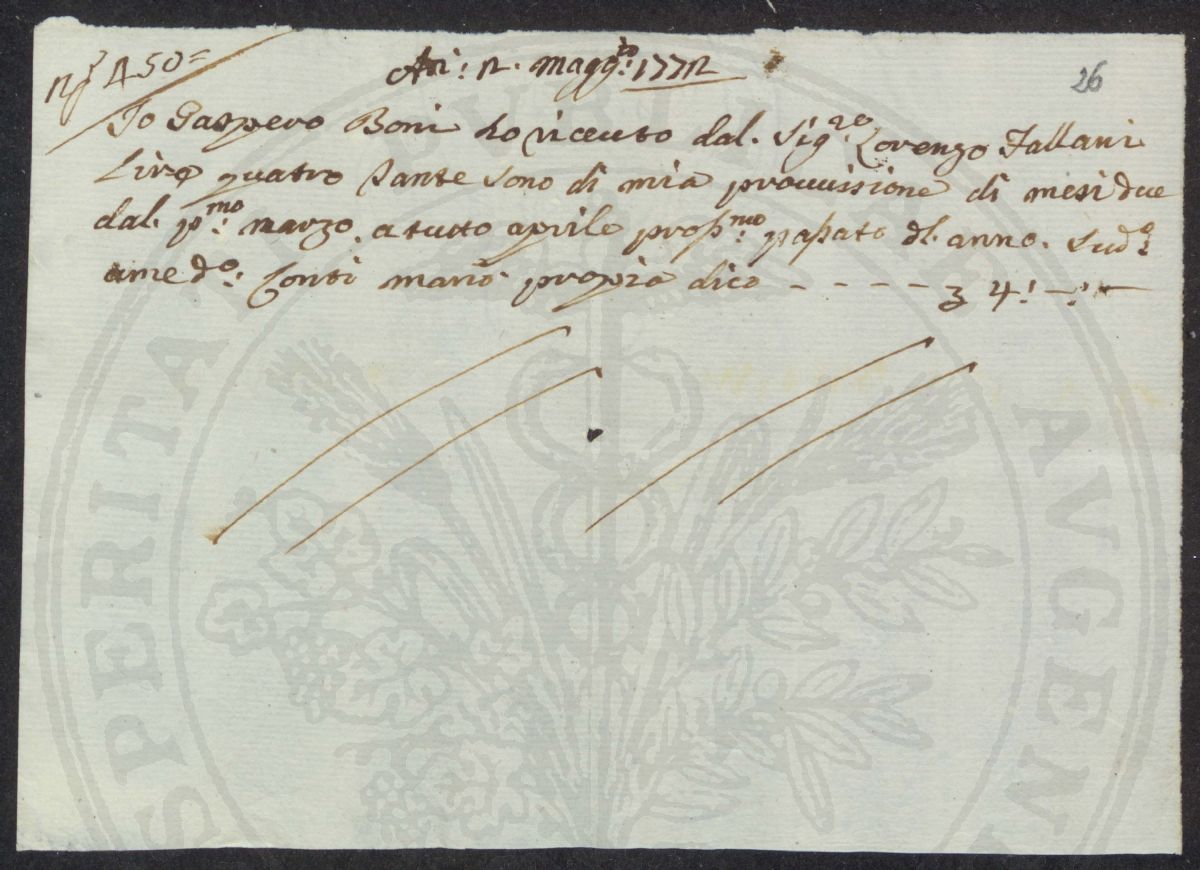 N.º 450=
Adì: 2. maggio: 1772
26
Io Gaspero Boni ho riceuto dal. Sig.re Lorenzo Fallani
Lire quatro tante sono di mia prouuissione di mesi due
dal. p.mo marzo. a tutto aprile prosp.mo passato dl. anno. Sud.o
ame d.o: Conti mano propia dico - - - - - 3 4: -: -
SPERITA PVBLICAE AVGEN